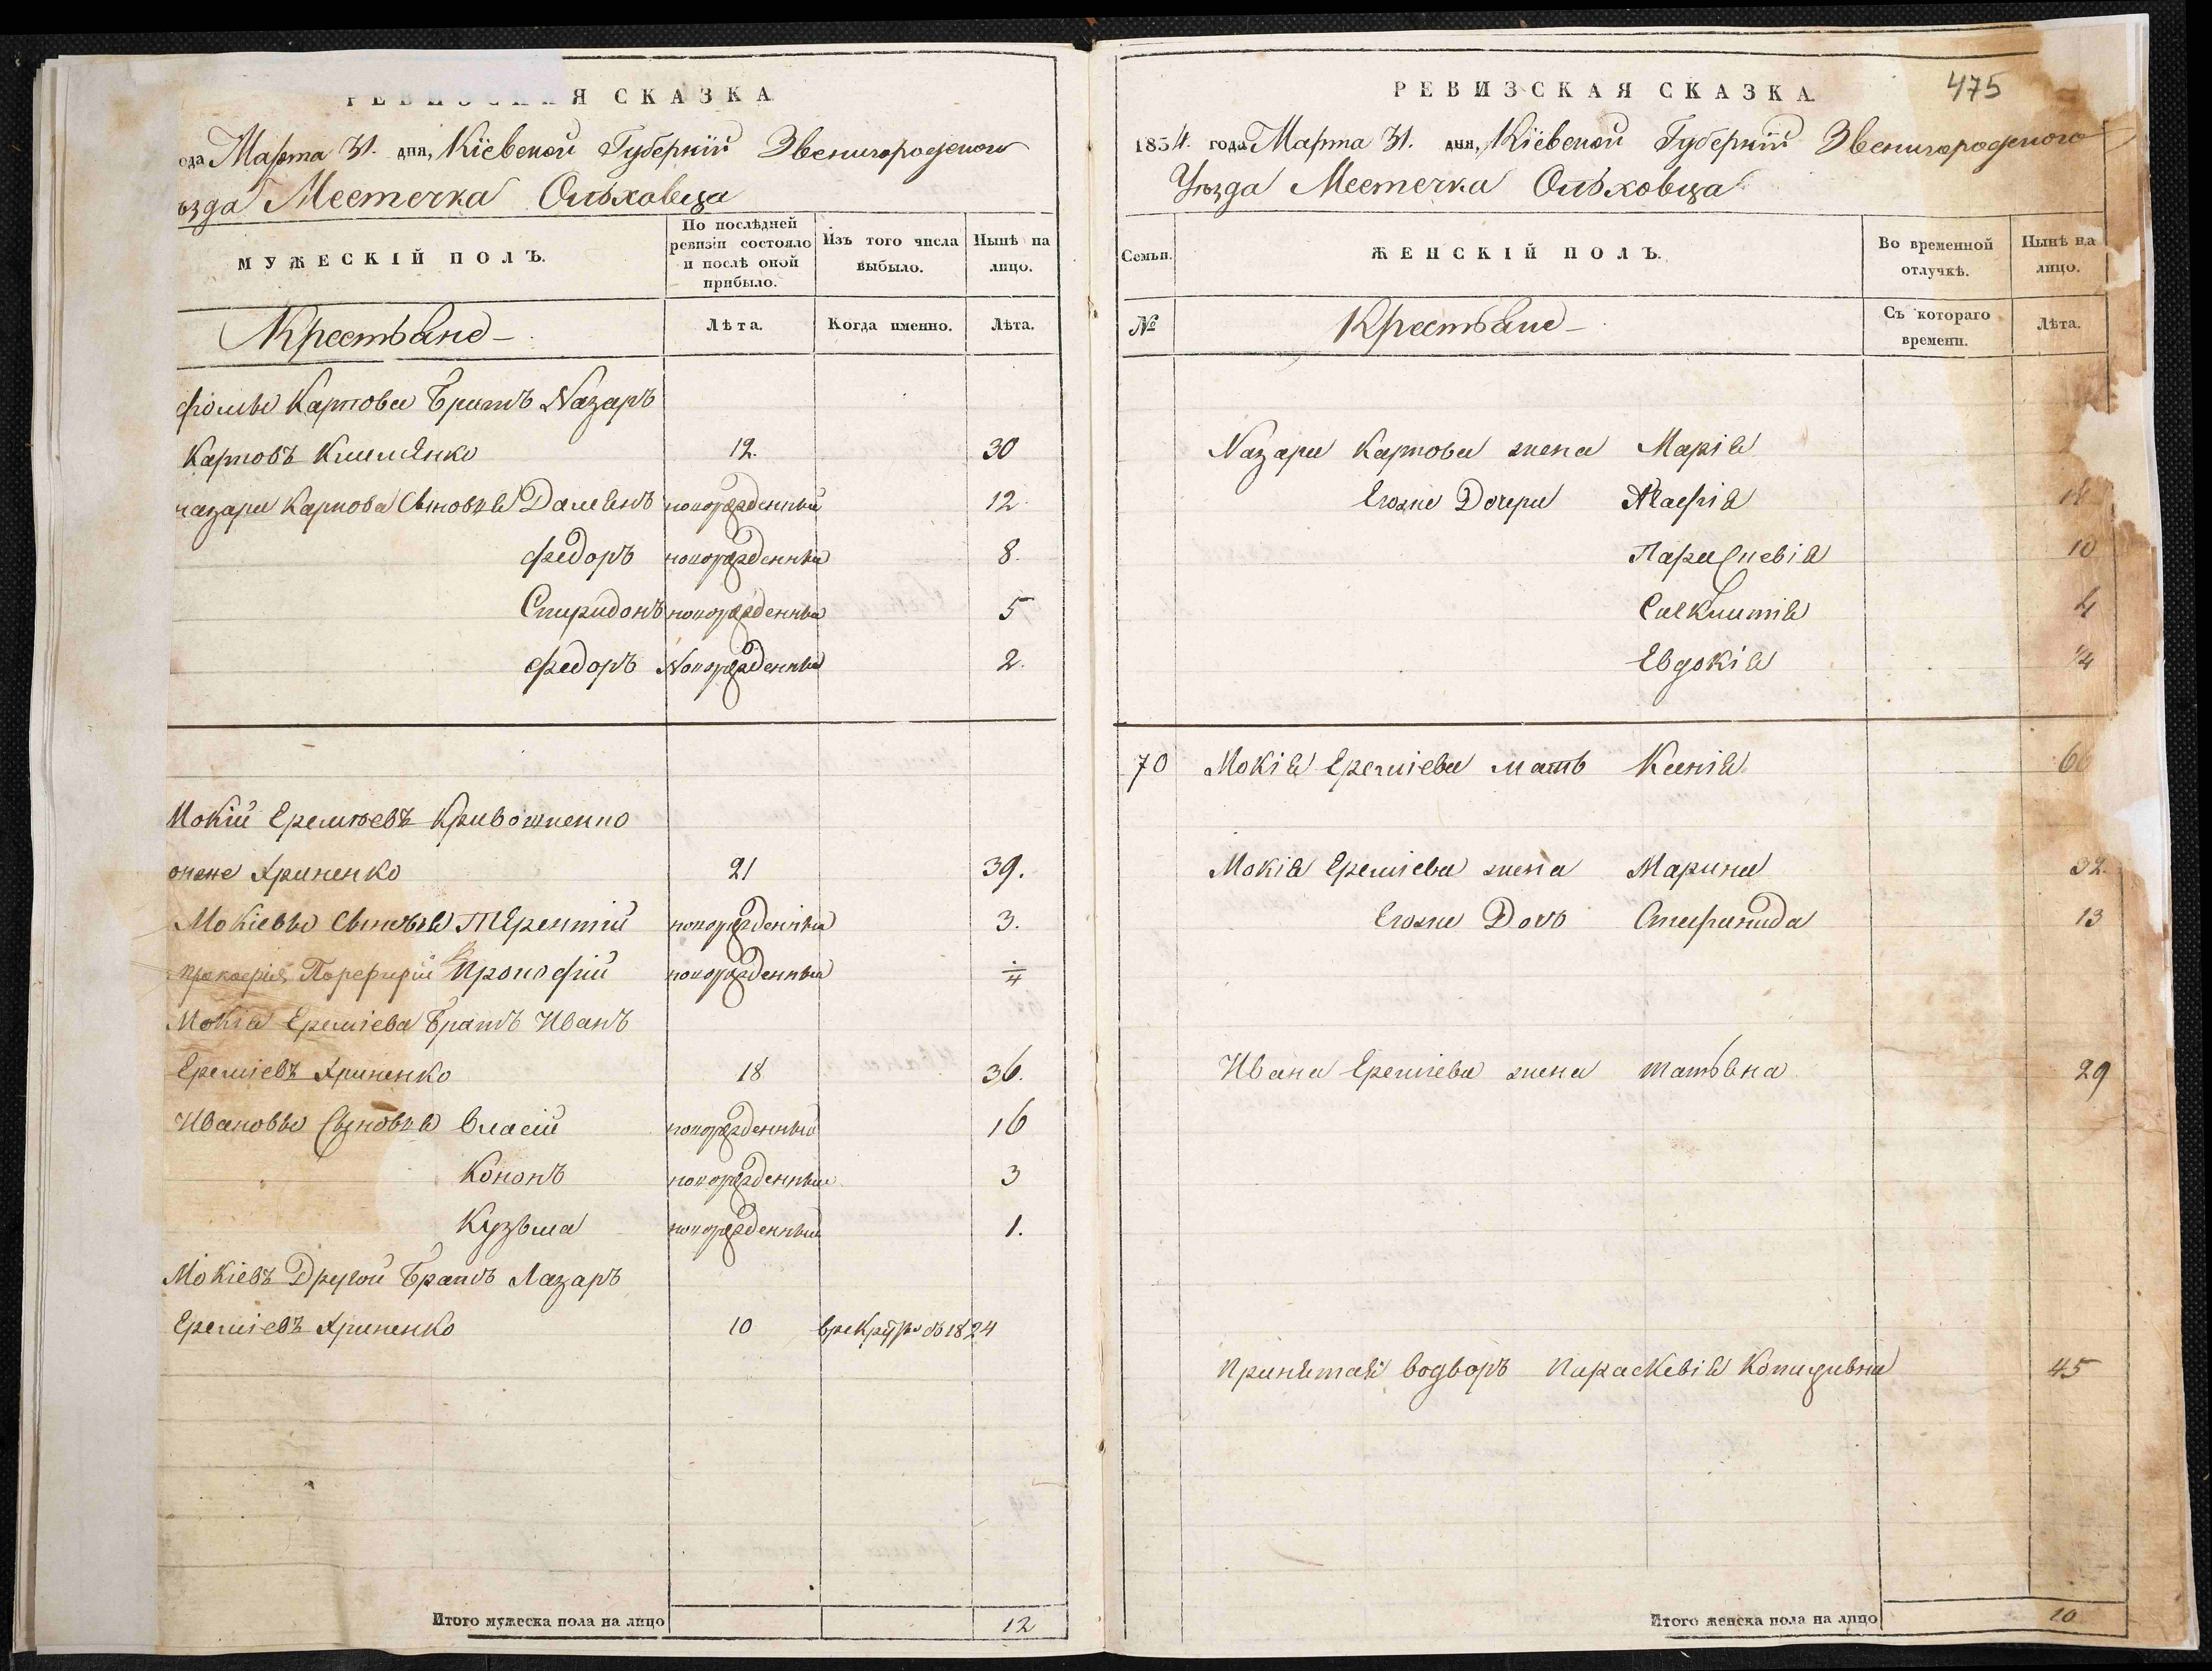 РЕВИЗСКАЯ СКАЗКА
ода Марта 31. дня, Кіевской Губерніи Звенигородского
ѣзда Местечка Ольховца
МУЖЕСКІЙ ПОЛЪ.
По послѣдней ревизіи состояло и послѣ оной прибыло.
Изъ того числа выбыло.
Нынѣ на лицо.
Крестьяне
Лѣта.
Когда именно.
Лѣта.
Фомы Карпова Братъ Назаръ
Карповъ 12. 30
Назара Карпова Сыновья Дамянъ новорожденный 12
Федоръ новорожденный 8.
Спиридонъ новорожденный 5
Федоръ Новорожденный 2.
Мокій Еремѣевъ
онже Гриненко 21 39.
Мокіевы Сыновья Терентій новорожденный 3.
Прокофія Порфирій Прокофій новорожденный 1/4
МокіяЕреміева Братъ Иванъ
Ереміевъ Гриненко 18 36.
Ивановы Сыновья Власій новорожденный 16
Кононъ новорожденный 3
Кузьма новорожденный 1.
Мокіевъ Другой Братъ Лазаръ
Ереміевъ Гриненко 10 врекруты въ 1824
Итого мужеска пола на лицо 12
475
РЕВИЗСКАЯ СКАЗКА
1854. года Марта 31. дня, Кіевской Губерніи Звенигородского
Уѣзда Местечка Ольховца
Семьи.
ЖЕНСКІЙ ПОЛЪ.
Во временной отлучкѣ.
Нынѣ на лицо.
№
Крестьяне
Съ котораго времени.
Лѣта.
Назара Карпова жена Марія
Егоже Дочери Агафія
Параскевія 10
Синклитія 4
Евдокія 1/4
70 Мокія Ереміева мать Ксенія 66
Мокія Ереміева жена Марина 32.
Егоже Дочь Стефанида 13
Ивана Ереміева жена Татьяна 29
Принятая водворъ Параскевія 45
Итого женска пола на лицо 10